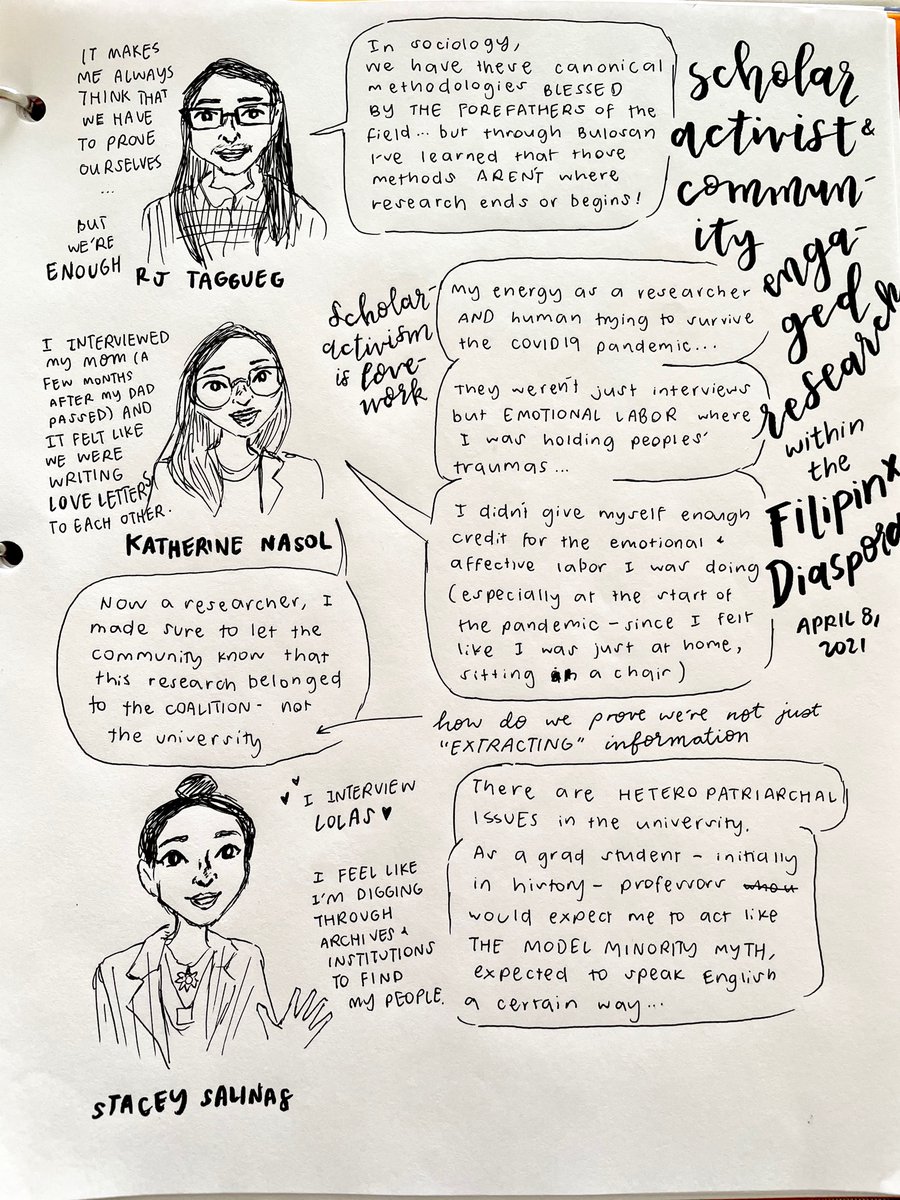 IT MAKES
ME ALWAYS
THINK THAT
WE HAVE
TO PROVE
OURSELVES
...
BUT
WE'RE
ENOUGH
RJ TAGGUEG
In sociology,
we have these canonical
methodologies BLESSED
BY THE FOREFATHERS of the
field... but through Bulosan
I've learned that those
methods AREN'T where
research ends or begins!
scholar
activist &
commun-
ity
enga-
ged
research
within
the
Filipinx
Diaspora
APRIL 8,
2021
scholar-
activism
is love-
work
I INTERVIEWED
MY MOM (A
FEW MONTHS
AFTER MY DAD
PASSED) AND
IT FELT LIKE
WE WERE
WRITING
LOVE LETTERS
TO EACH OTHER.
KATHERINE NASOL
My energy as a researcher
AND human trying to survive
the COVID19 pandemic...
They weren't just interviews
but EMOTIONAL LABOR where
I was holding peoples'
traumas...
I didn't give myself enough
credit for the emotional &
affective labor I was doing
(especially at the start of
the pandemic - since I felt
like I was just at home,
sitting in a chair)
Now a researcher, I
made sure to let the
community know that
this research belonged
to the COALITION - not
the university
how do we prove we're not just
"EXTRACTING" information
I INTERVIEW
LOLAS
I FEEL LIKE
I'M DIGGING
THROUGH
ARCHIVES &
INSTITUTIONS
TO FIND
MY PEOPLE.
STACEY SALINAS
There are HETEROPATRIARCHAL
ISSUES in the university.
As a grad student - initially
in history - professors
would expect me to act like
THE MODEL MINORITY MYTH,
expected to speak English
a certain way...